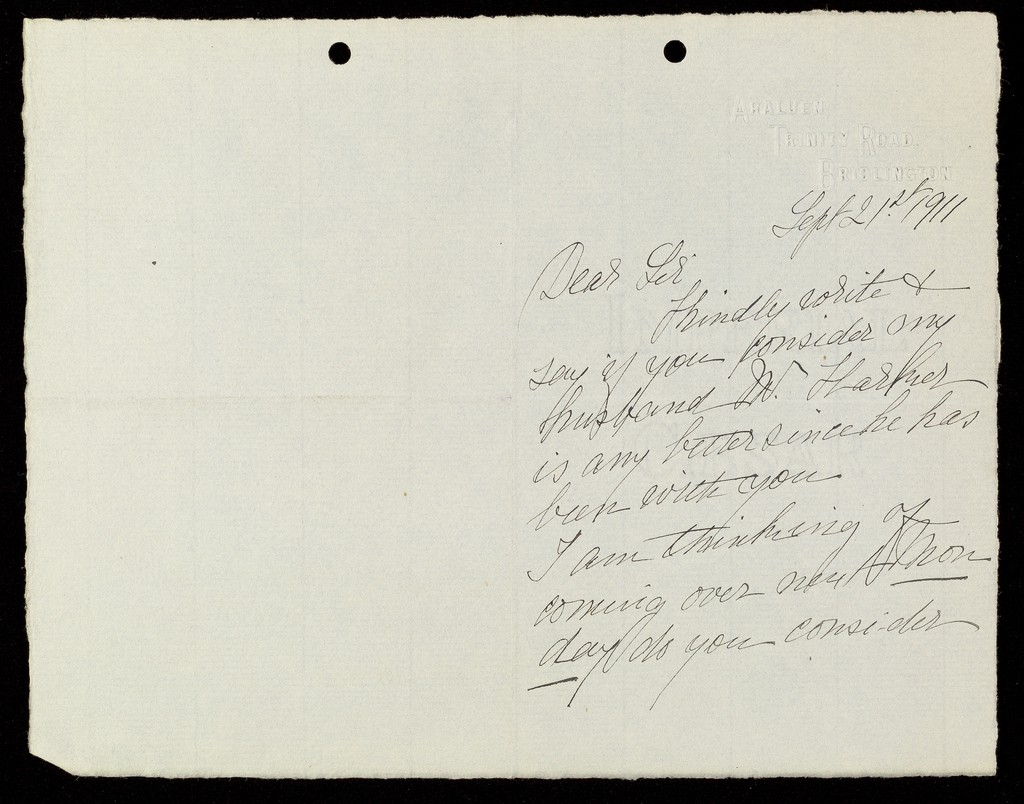 ARALUEN
TRINITY ROAD.
BRIDLINGTON
Sept 21st 1911
Dear Sir
Kindly write &
say if you consider my
husband W. Harker
is any better since he has
been with you
I am thinking of
coming over next Mon
day do you consider